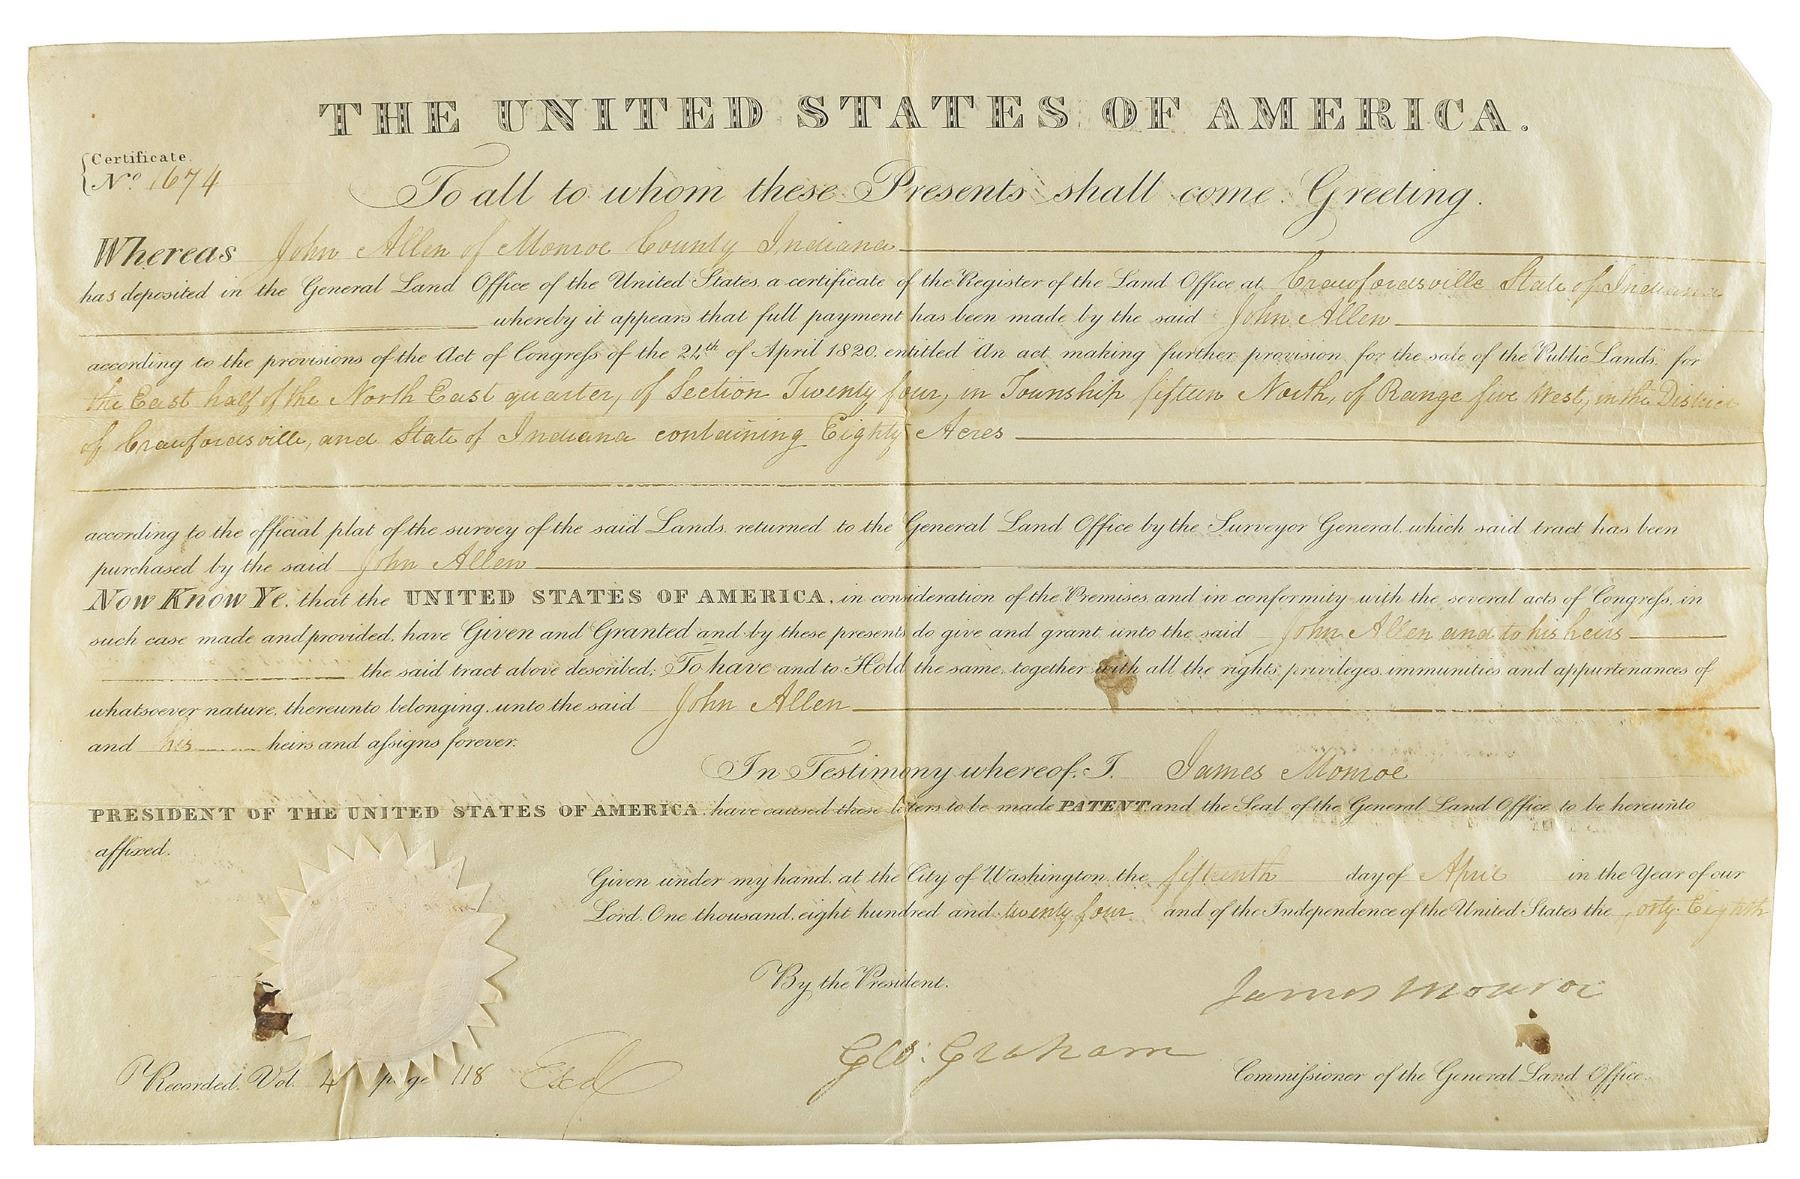 THE UNITED STATES OF AMERICA.
Certificate
No. 1674
To all to whom these Presents shall come Greeting.
Whereas John Allen of Monroe County Indiana
has deposited in the General Land Office of the United States, a certificate of the Register of the Land Office at Crawfordsville State of Indiana
whereby it appears that full payment has been made by the said John Allen
according to the provisions of the Act of Congress of the 24th of April 1820, entitled An act making further provision for the sale of the Public Lands, for
the East half of the North East quarter, of Section Twenty four, in Township fifteen North, of Range five West, in the District
of Crawfordsville, and State of Indiana containing Eighty Acres
according to the official plat of the survey of the said Lands, returned to the General Land Office by the Surveyor General, which said tract has been
purchased by the said John Allen
Now Know Ye, that the UNITED STATES OF AMERICA, in consideration of the Premises, and in conformity with the several acts of Congress, in
such case made and provided, have Given and Granted and by these presents do give and grant, unto the said John Allen and to his heirs
the said tract above described; To have and to Hold the same, together with all the rights, privileges, immunities and appurtenances of
whatsoever nature, thereunto belonging, unto the said John Allen
and his heirs and assigns forever.
In Testimony whereof, I, James Monroe
PRESIDENT OF THE UNITED STATES OF AMERICA, have caused these letters to be made PATENT and the Seal of the General Land Office to be hereunto
affixed.
Given under my hand, at the City of Washington, the fifteenth day of April in the Year of our
Lord, One thousand, eight hundred and twenty four and of the Independence of the United States the forty Eighth
By the President.
James Monroe
Geo: Graham
Commissioner of the General Land Office.
Recorded, Vol. 4 page 118 Exd